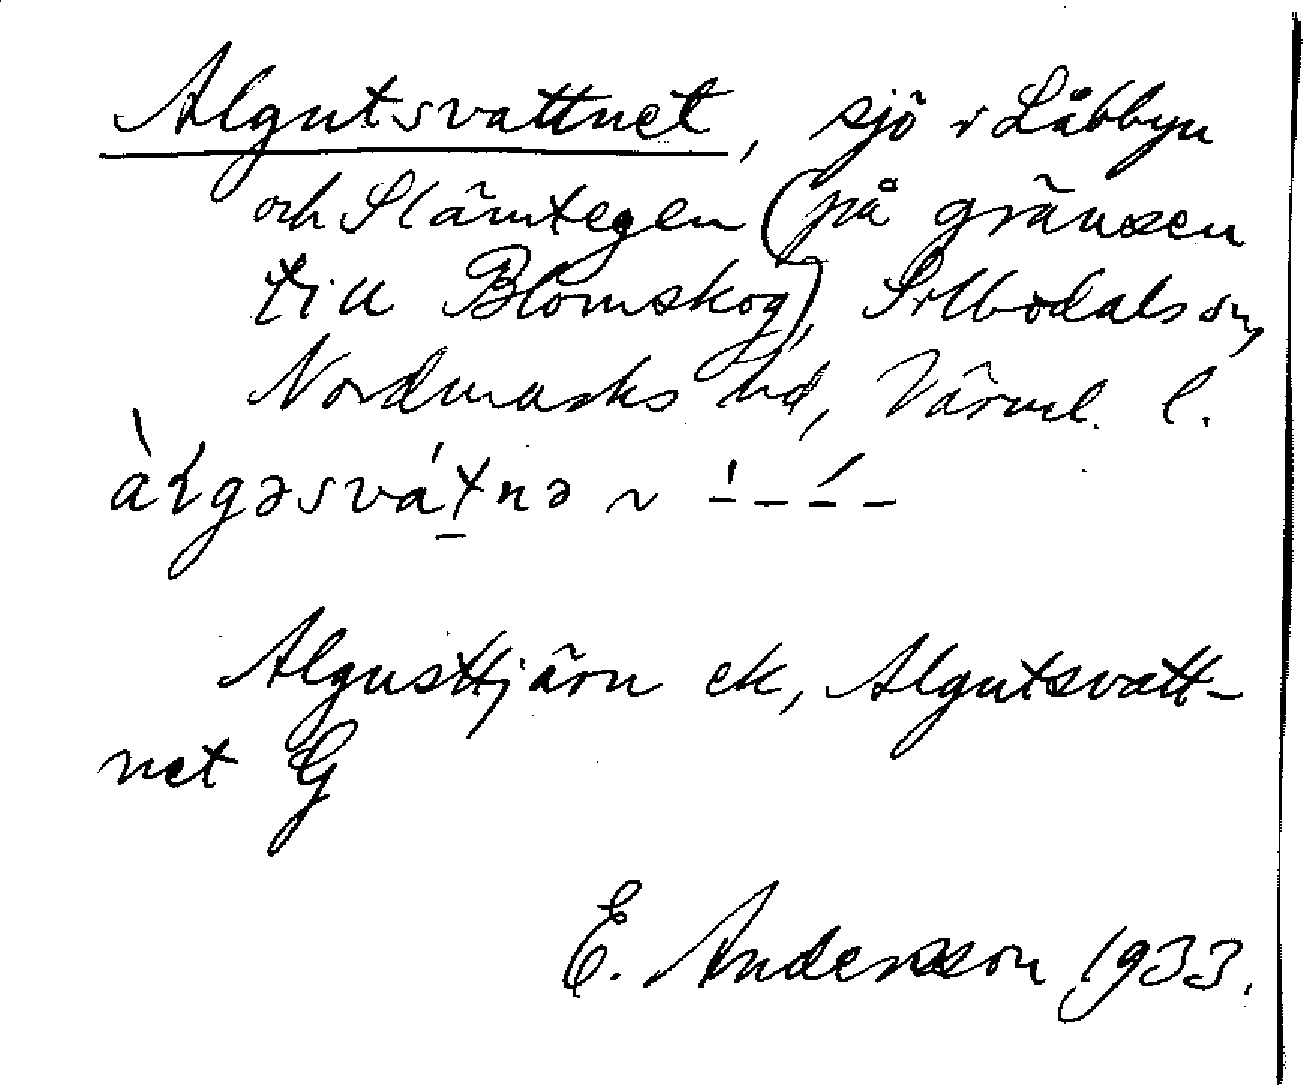 Algutsvattnet, sjö i Låbbyn
och Slämtegen (på gränsen
till Blomskog), Silbodals sn,
Nordmarks hd, Värml. l.
àɭgəsvátnə ~ –́ – –́ –
Algusttjärn ek, Algutsvatt-
net G
E. Andersson 1933.